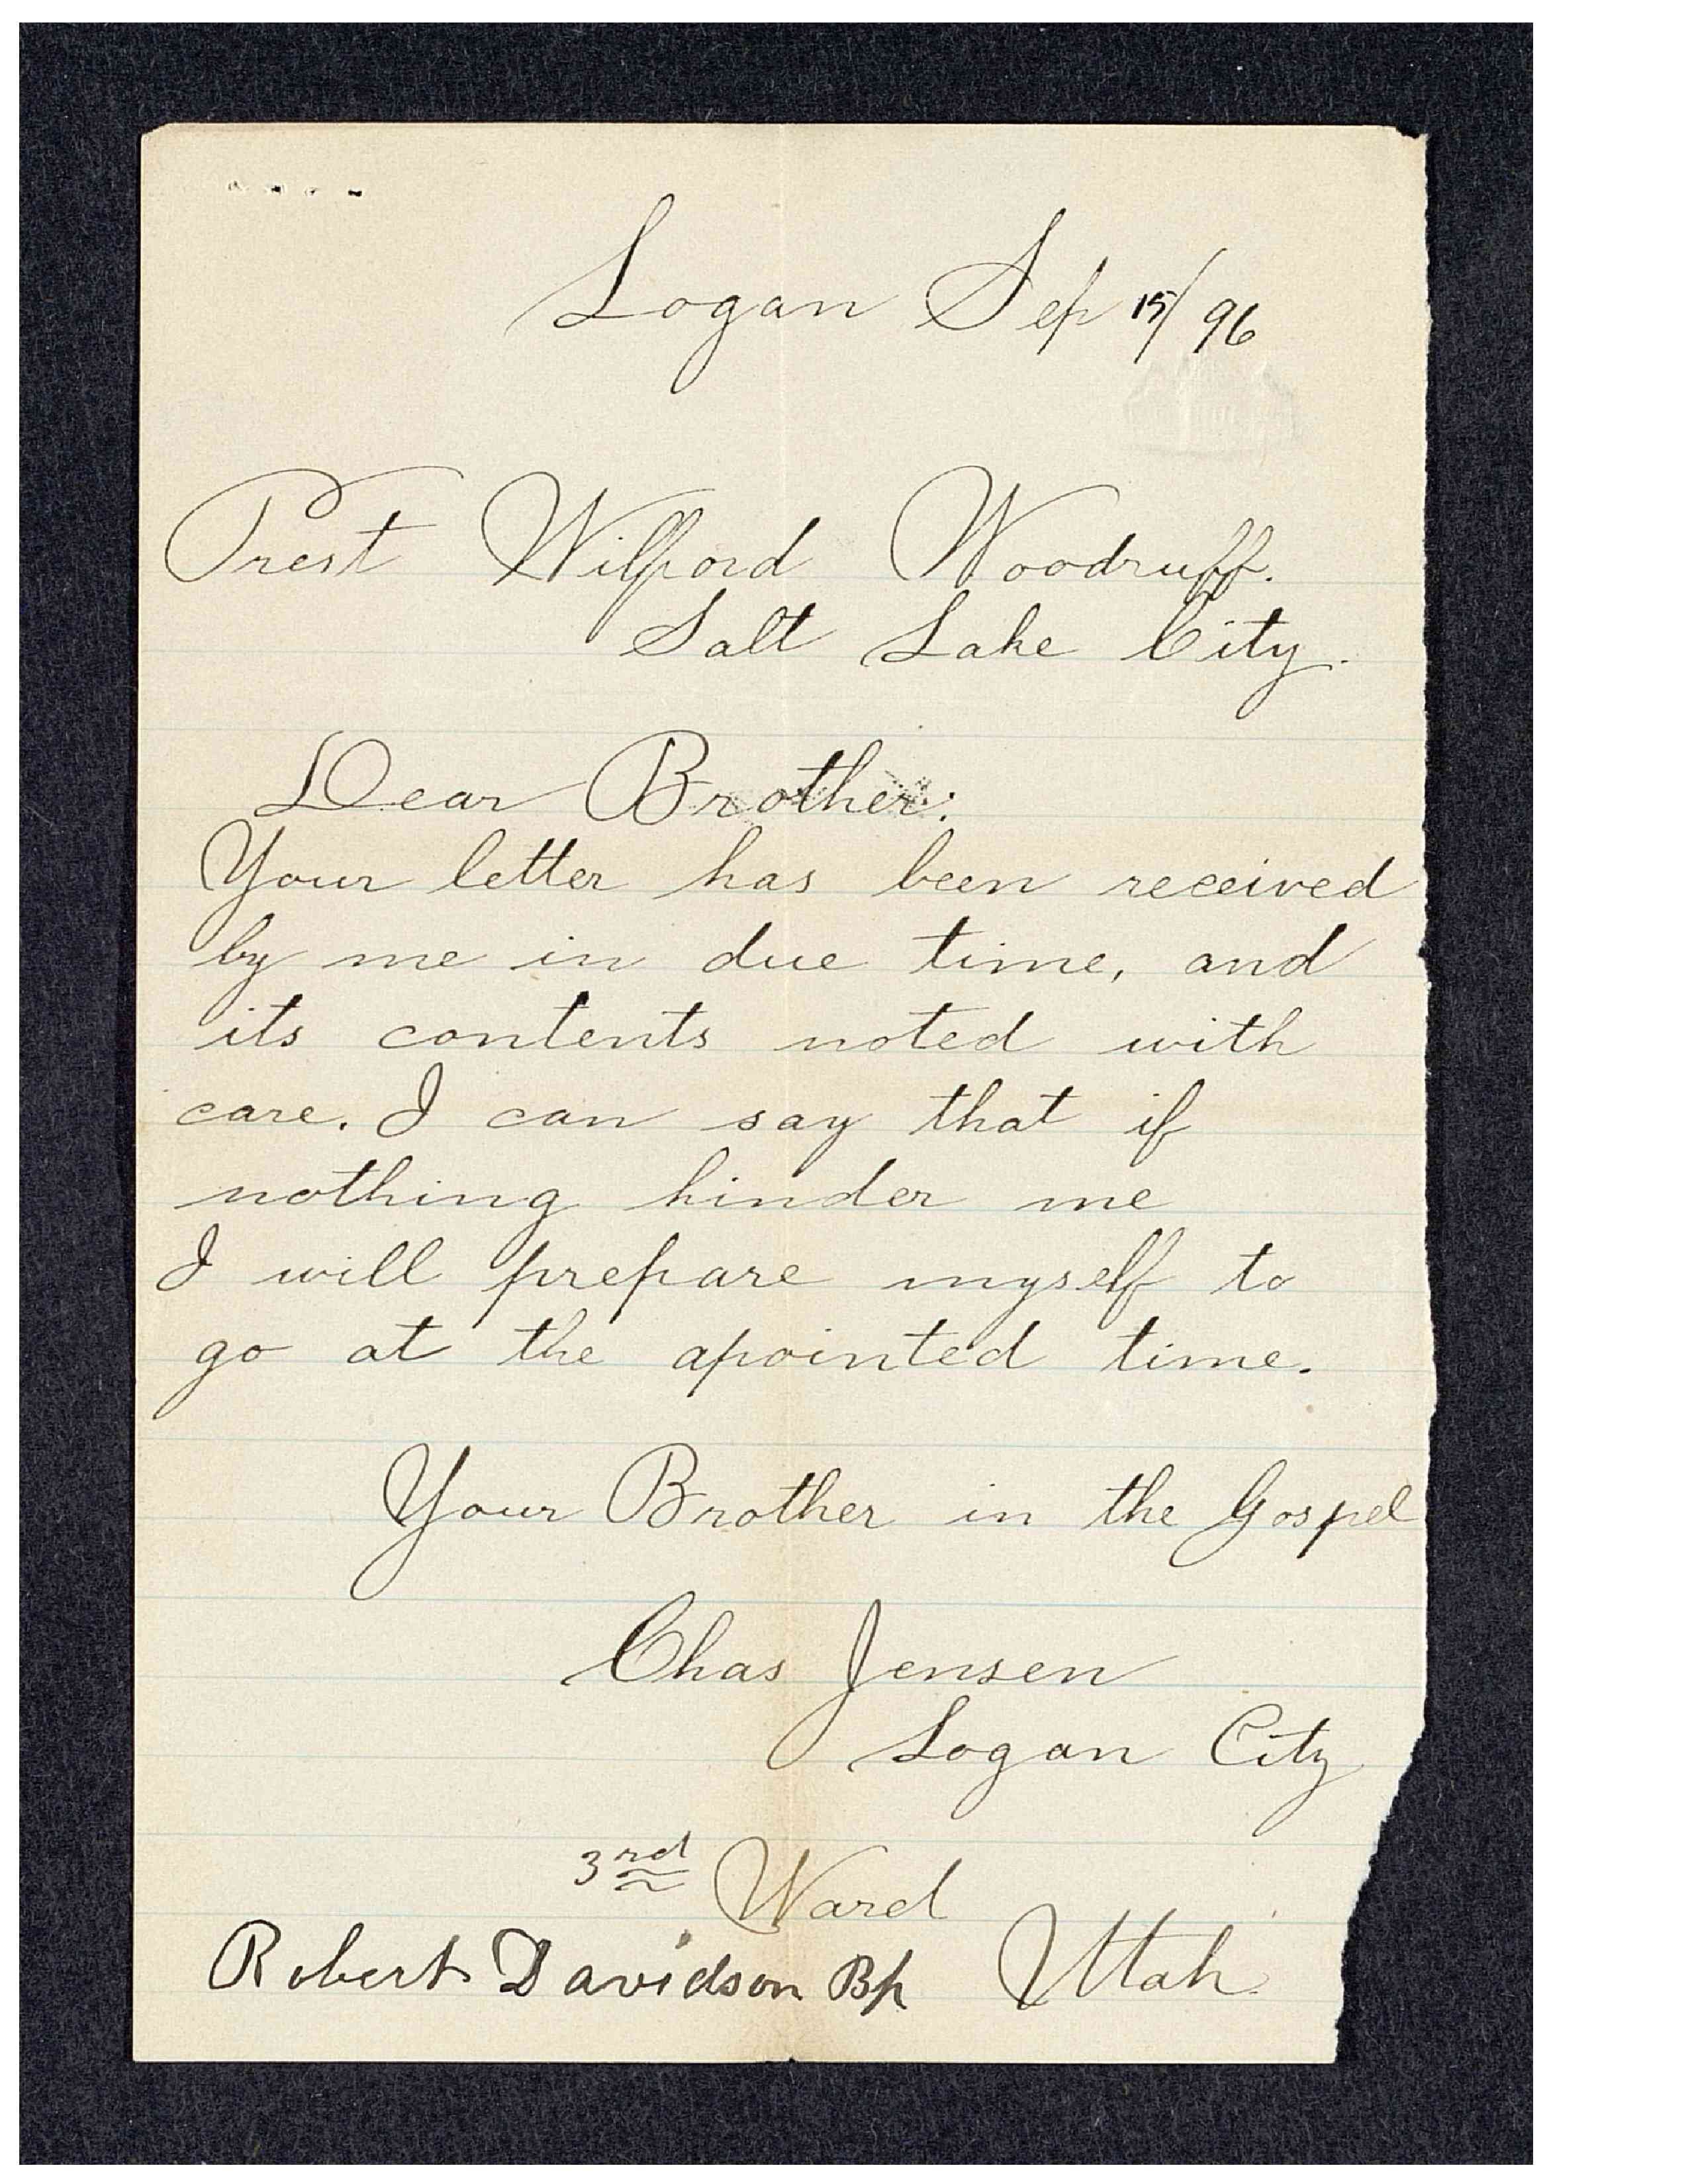 Logan Sep 15/96
Prest Wilford Woodruff.
Salt Lake City.
Dear Brother:
Your letter has been received
by me in due time, and
its contents noted with
care. I can say that if
nothing hinder me
I will prepare myself to
go at the apointed time.
Your Brother in the Gospel
Chas Jensen
Logan City
3rd Ward
Utah
Robert Davidson Bp